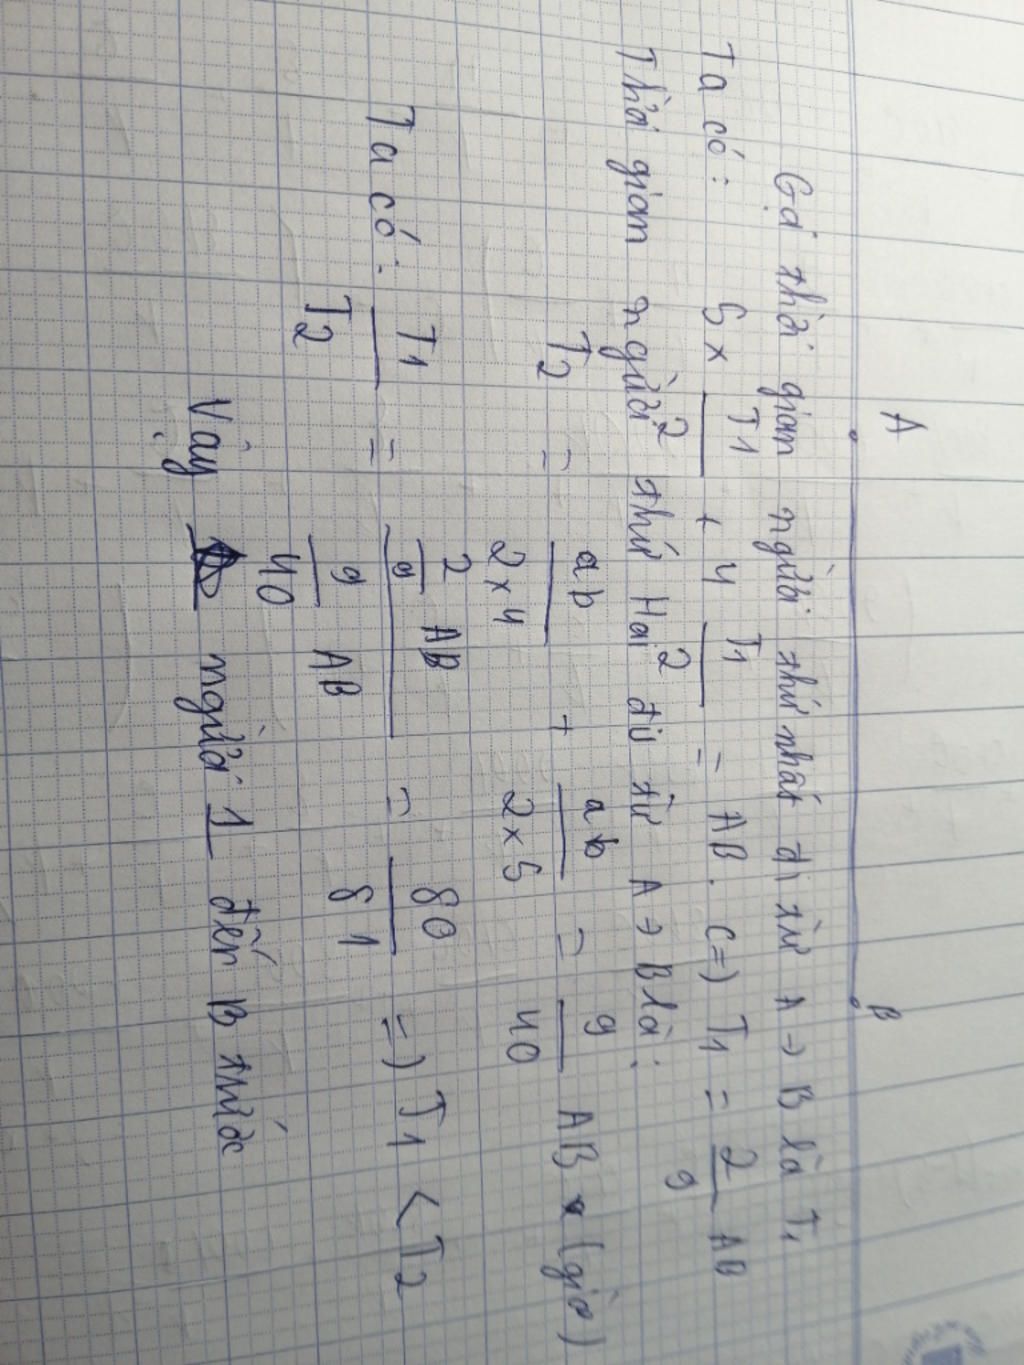 A B
Gọi thời gian người thứ nhất đi từ A → B là T1
Ta có: 5 x T1/2 + 4 T1/2 = AB. <=> T1 = 2/9 AB
Thời gian người thứ Hai đi từ A → B là:
T2 = ab/2x4 + ab/2x5 = 9/40 AB (giờ)
Ta có: T1/T2 = 2/9 AB / 9/40 AB = 80/81 => T1 < T2
Vậy người 1 đến B trước